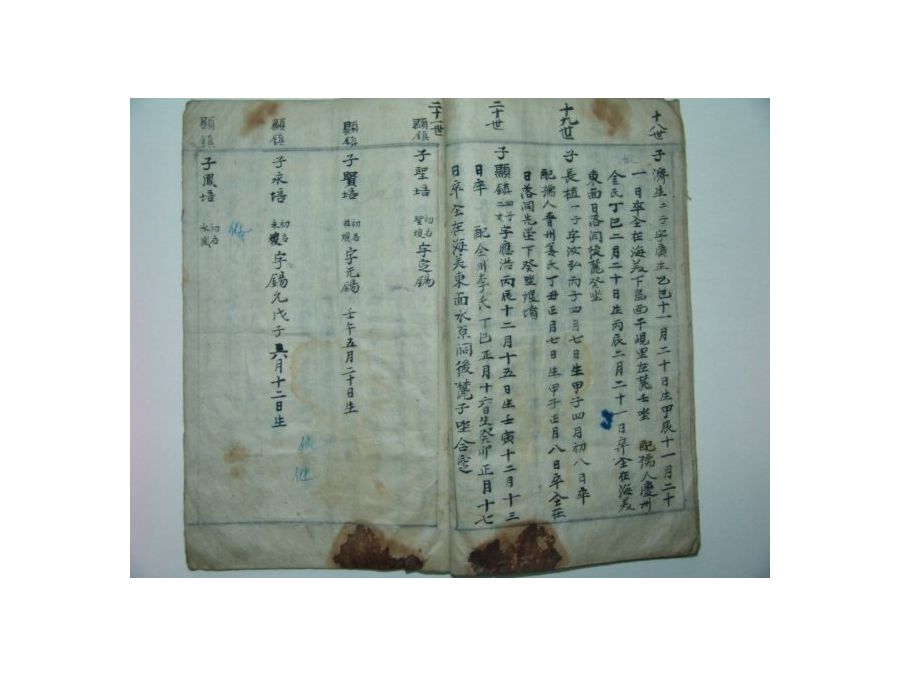 十八世
子濟生二子字廣生乙巳十一月二十日生甲辰十一月二十
一日卒仝在海美下島面千峴里左麓壬坐 配孺人慶州
金氏丁巳二月二十日生丙辰二月二十一日卒仝在海美
東面日落洞後麓癸坐
十九世
子長植一子字汝弘丙子四月七日生甲子四月初八日卒
配孺人晋州姜氏丁丑正月七日生甲子正月八日卒仝在
日落洞先塋下癸坐
二十世
子顯鎮四子二女字應浩丙辰十二月十五日生壬寅十二月十三
日卒 配全州李氏丁巳正月十六日生癸卯正月十七
日卒仝在海美東面水京洞後麓子坐合窆
二十一世
顯鎮
子聖培 初名聖煥 字定錫
顯鎮
子賢培 初名 字元錫 壬午五月二十日生
顯鎮
子永培 初名 字錫允戊子六月十二日生
顯鎮
子鳳培 初名永鳳